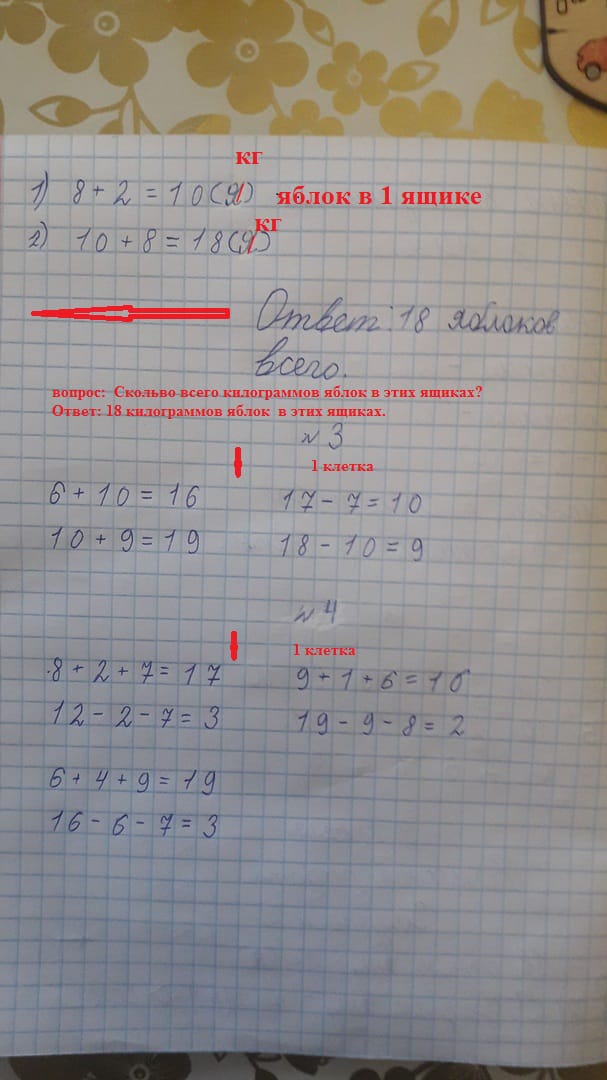 кг
1) 8 + 2 = 10 (Я) яблок в 1 ящике
кг
2) 10 + 8 = 18 (Я)
Ответ: 18 яблоков
всего.
вопрос: Скольво всего килограммов яблок в этих ящиках?
Ответ: 18 килограммов яблок в этих ящиках.
№ 3
1 клетка
6 + 10 = 16 17 - 7 = 10
10 + 9 = 19 18 - 10 = 9
№ 4
1 клетка
8 + 2 + 7 = 17 9 + 1 + 6 = 16
12 - 2 - 7 = 3 19 - 9 - 8 = 2
6 + 4 + 9 = 19
16 - 6 - 7 = 3